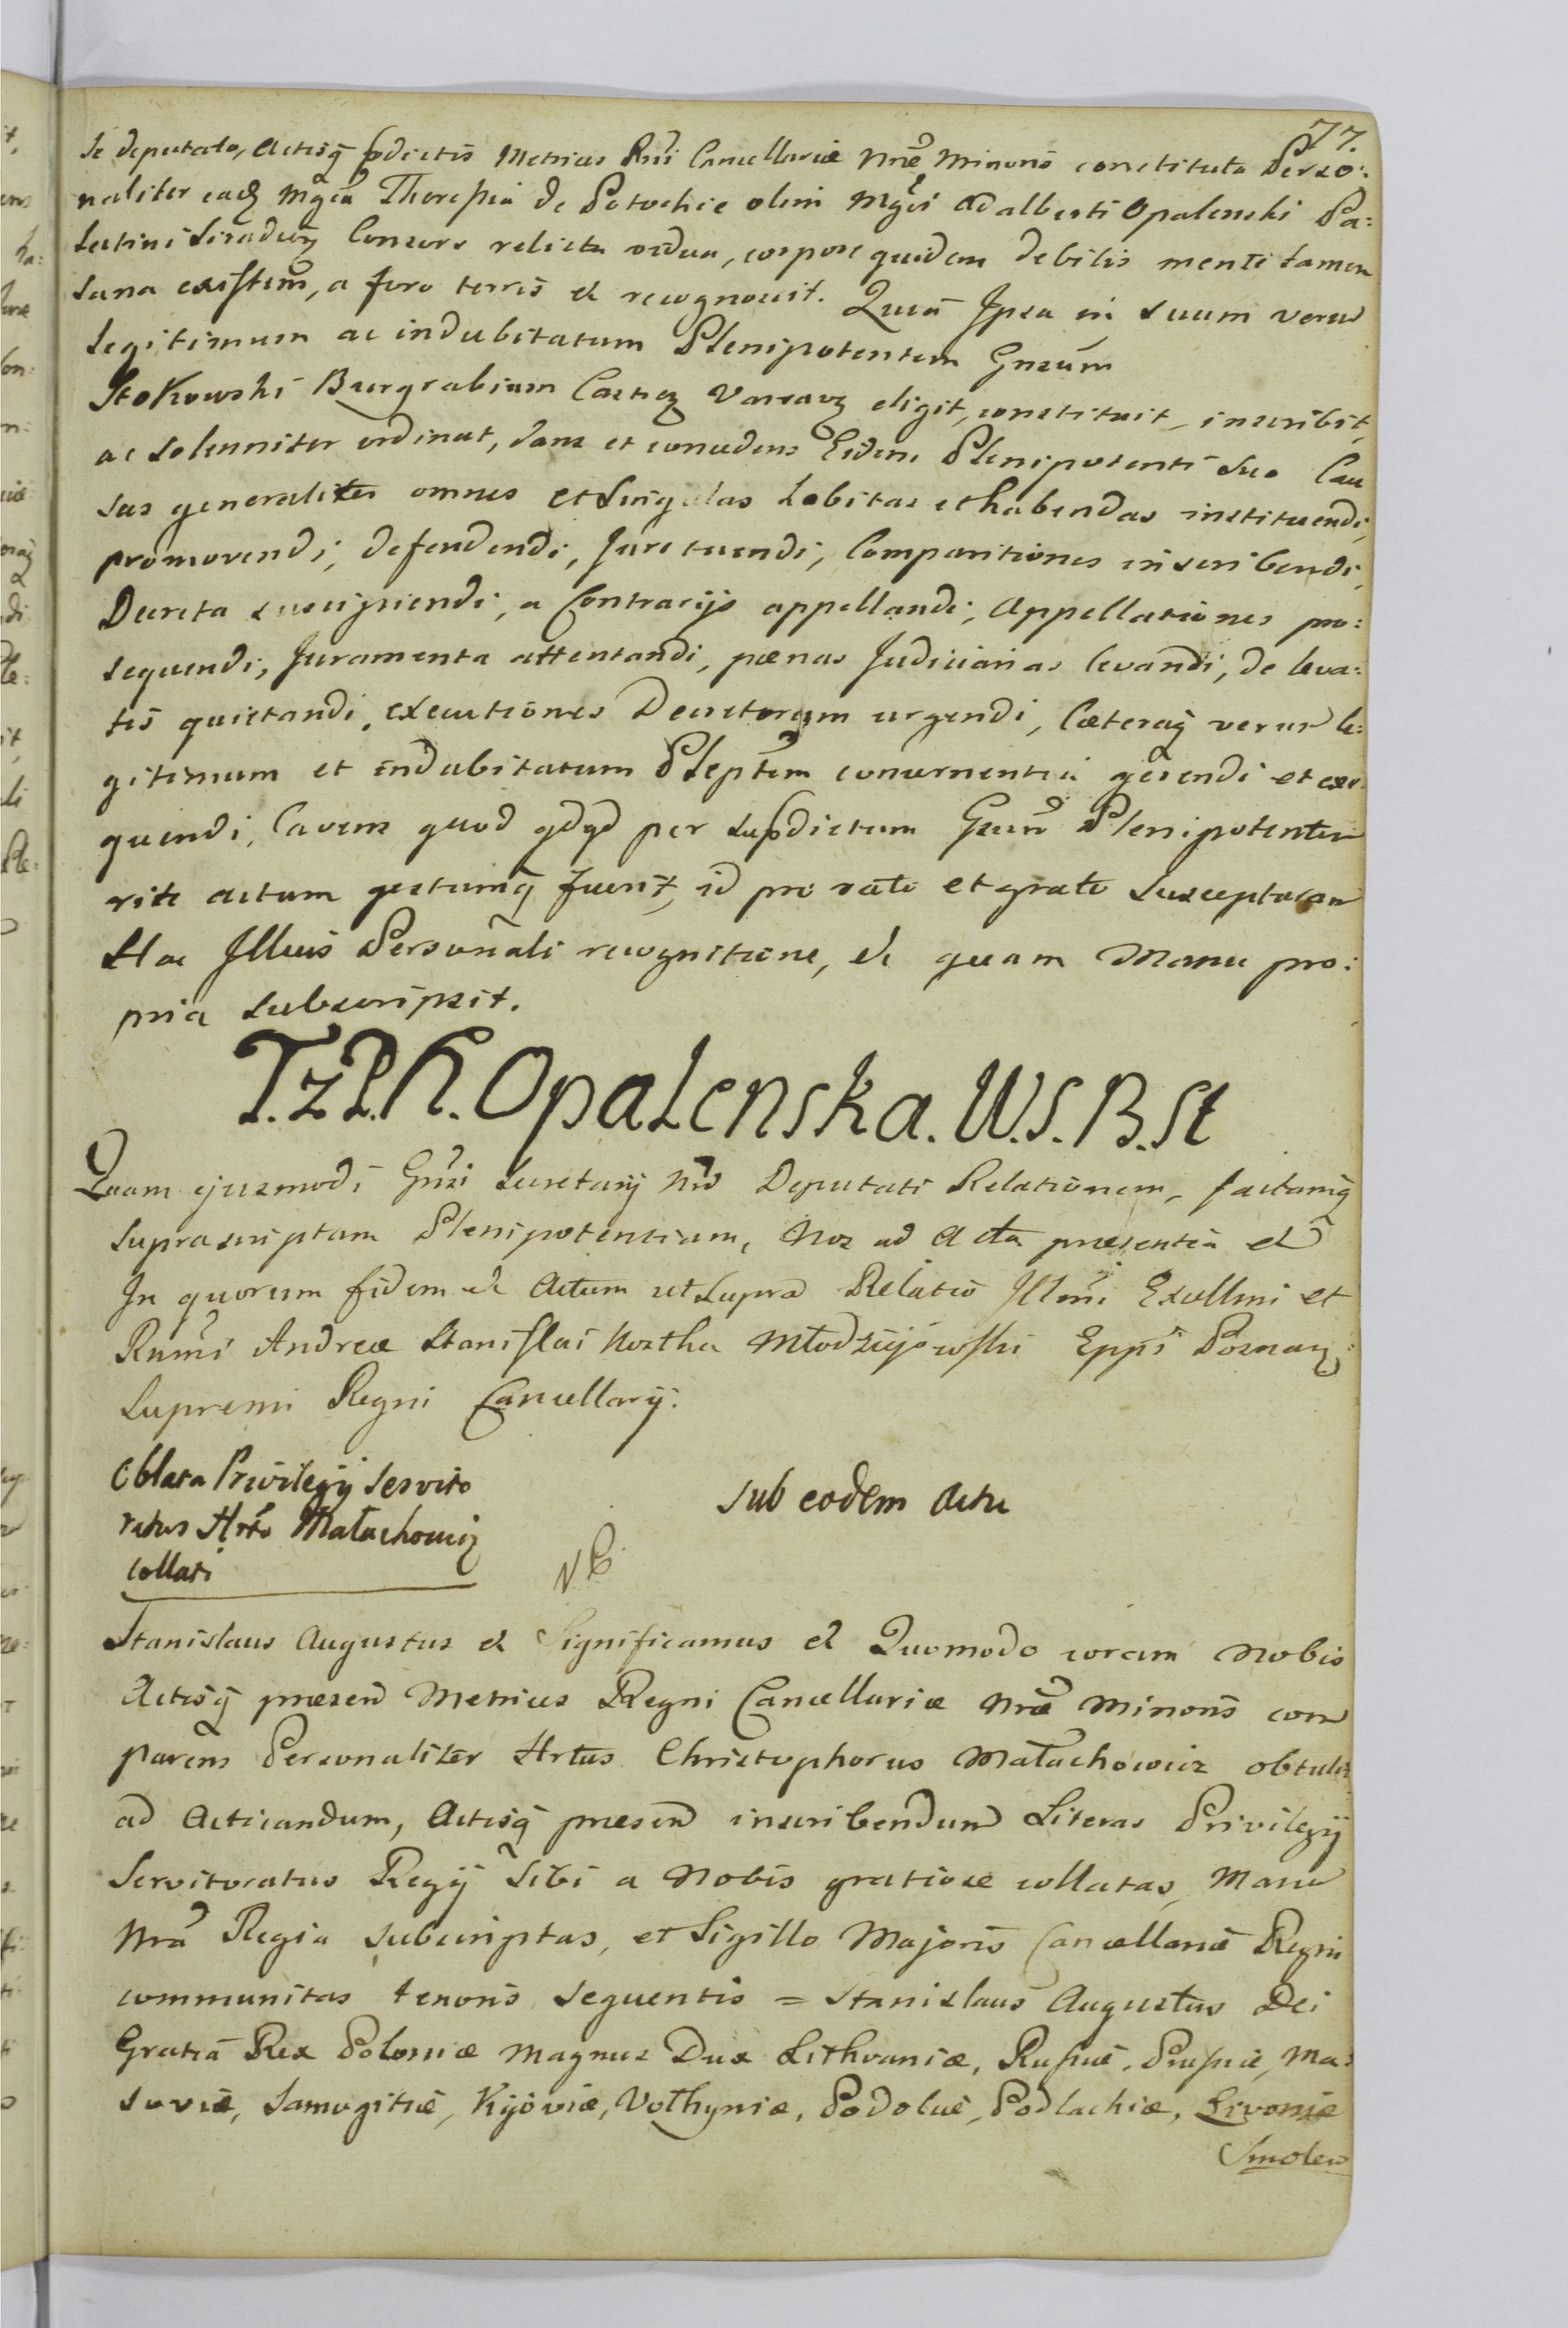 77.
se deputato, Actisq. pdictis Metrices Rni Cancellariæ Nræ Minoris constituta Perso:
naliter eadē Mgca Theressia de Potockie olim Mgci Adalberti Opalenski Pa:
latini Siradien Consors relicta vidua, corpore quidem debilis mente tamen
sana existen, a foro terris et recognovit. Quia Ipsa in suum verum
Legitimum ac indubitatum Plenipotentem Gnsum
Stokowski Burgrabium Castren Varsav eligit, constituit, inscribit,
ac solenniter ordinat, dans et concedens Eidem Plenipotenti suo Cau
sas generaliter omnes et singulas habitas et habendas instituendi,
promovendi, defendendi, Jure tuendi, Comparitiones inscribendi,
Decreta suscipiendi, a Contrarijs appellandi, Appellationes pro:
sequendi, Juramenta attentandi, pœnas Judiciarias levandi, de leva:
tis quietandi, executiones Decretorum urgendi, Cæteraq. verum le:
gitimum et indubitatum Plenptem concernentia gerendi et exe
quendi, Cavens quod qdqd per supdictum Gnsum Plenipotentem
rite actum gestumq. fuerit, id pro rato et grato suscepturam
Hac Illius Personali recognitione, et quam Manu pro:
pria subscripsit.
T. z P. K. OpaLenska. W. S. B. St
Quam ejusmodi Gnsi Secretarij Nri Deputati Relationem, factamq.
suprascriptam Plenipotentiam, Nos ad Acta præsentia et
In quorum fidem et Actum ut supra Relatio Illmi Excellmi et
Rnmi Andreæ Stanislai Kostka Młodziejowski Eppi Posnan:
Supremi Regni Cancellarij.
Oblata Privilegij Servito
ratus Hrto Małachowicz
collati
sub eodem Actu
NB.
Stanislaus Augustus et Significamus et Quomodo coram Nobis
Actisq. præsen Metrices Regni Cancellariæ Nræ Minoris com
parens Personaliter Hrtus Christophorus Małachowicz obtulit
ad Acticandum, Actisq. præsen inscribendum Literas Privilegij
Servitoratus Regij Sibi a Nobis gratiose collatas, Manu
Nra Regia subscriptas, et Sigillo Majoris Cancellariæ Regni
communitas tenoris sequentis = Stanislaus Augustus Dei
Gratia Rex Poloniæ Magnus Dux Lithvaniæ, Russiæ, Prussiæ, Ma:
soviæ, Samogitiæ, Kijoviæ, Volhyniæ, Podoliæ, Podlachiæ, Livoniæ
Smolen